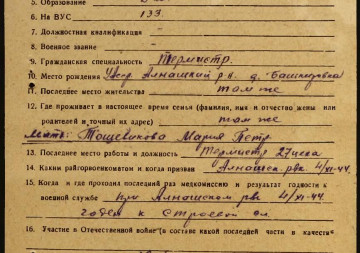 5. Образование
6. На ВУС 133.
7. Должностная квалификация -
8. Военное звание -
9. Гражданская специальность Термистр.
10. Место рождения Алнашский р-н д.
11. Последнее место жительства там же
12. Где проживает в настоящее время семья (фамилия, имя и отчество жены или
родителей и точный их адрес) там же
Мать: Мария Петр.
13. Последнее место работы и должность Термистр 27 цеха
14. Каким райгорвоенкоматом и когда призван Алнашск. рвк 4/XI-44.
15. Когда и где проходил последний раз медкомиссию и результат годности к
военной службе при Алнашском рвк 4/XI-44.
годен к строевой сл.
16. Участие в Отечественной войне (в составе какой последней части и в качестве